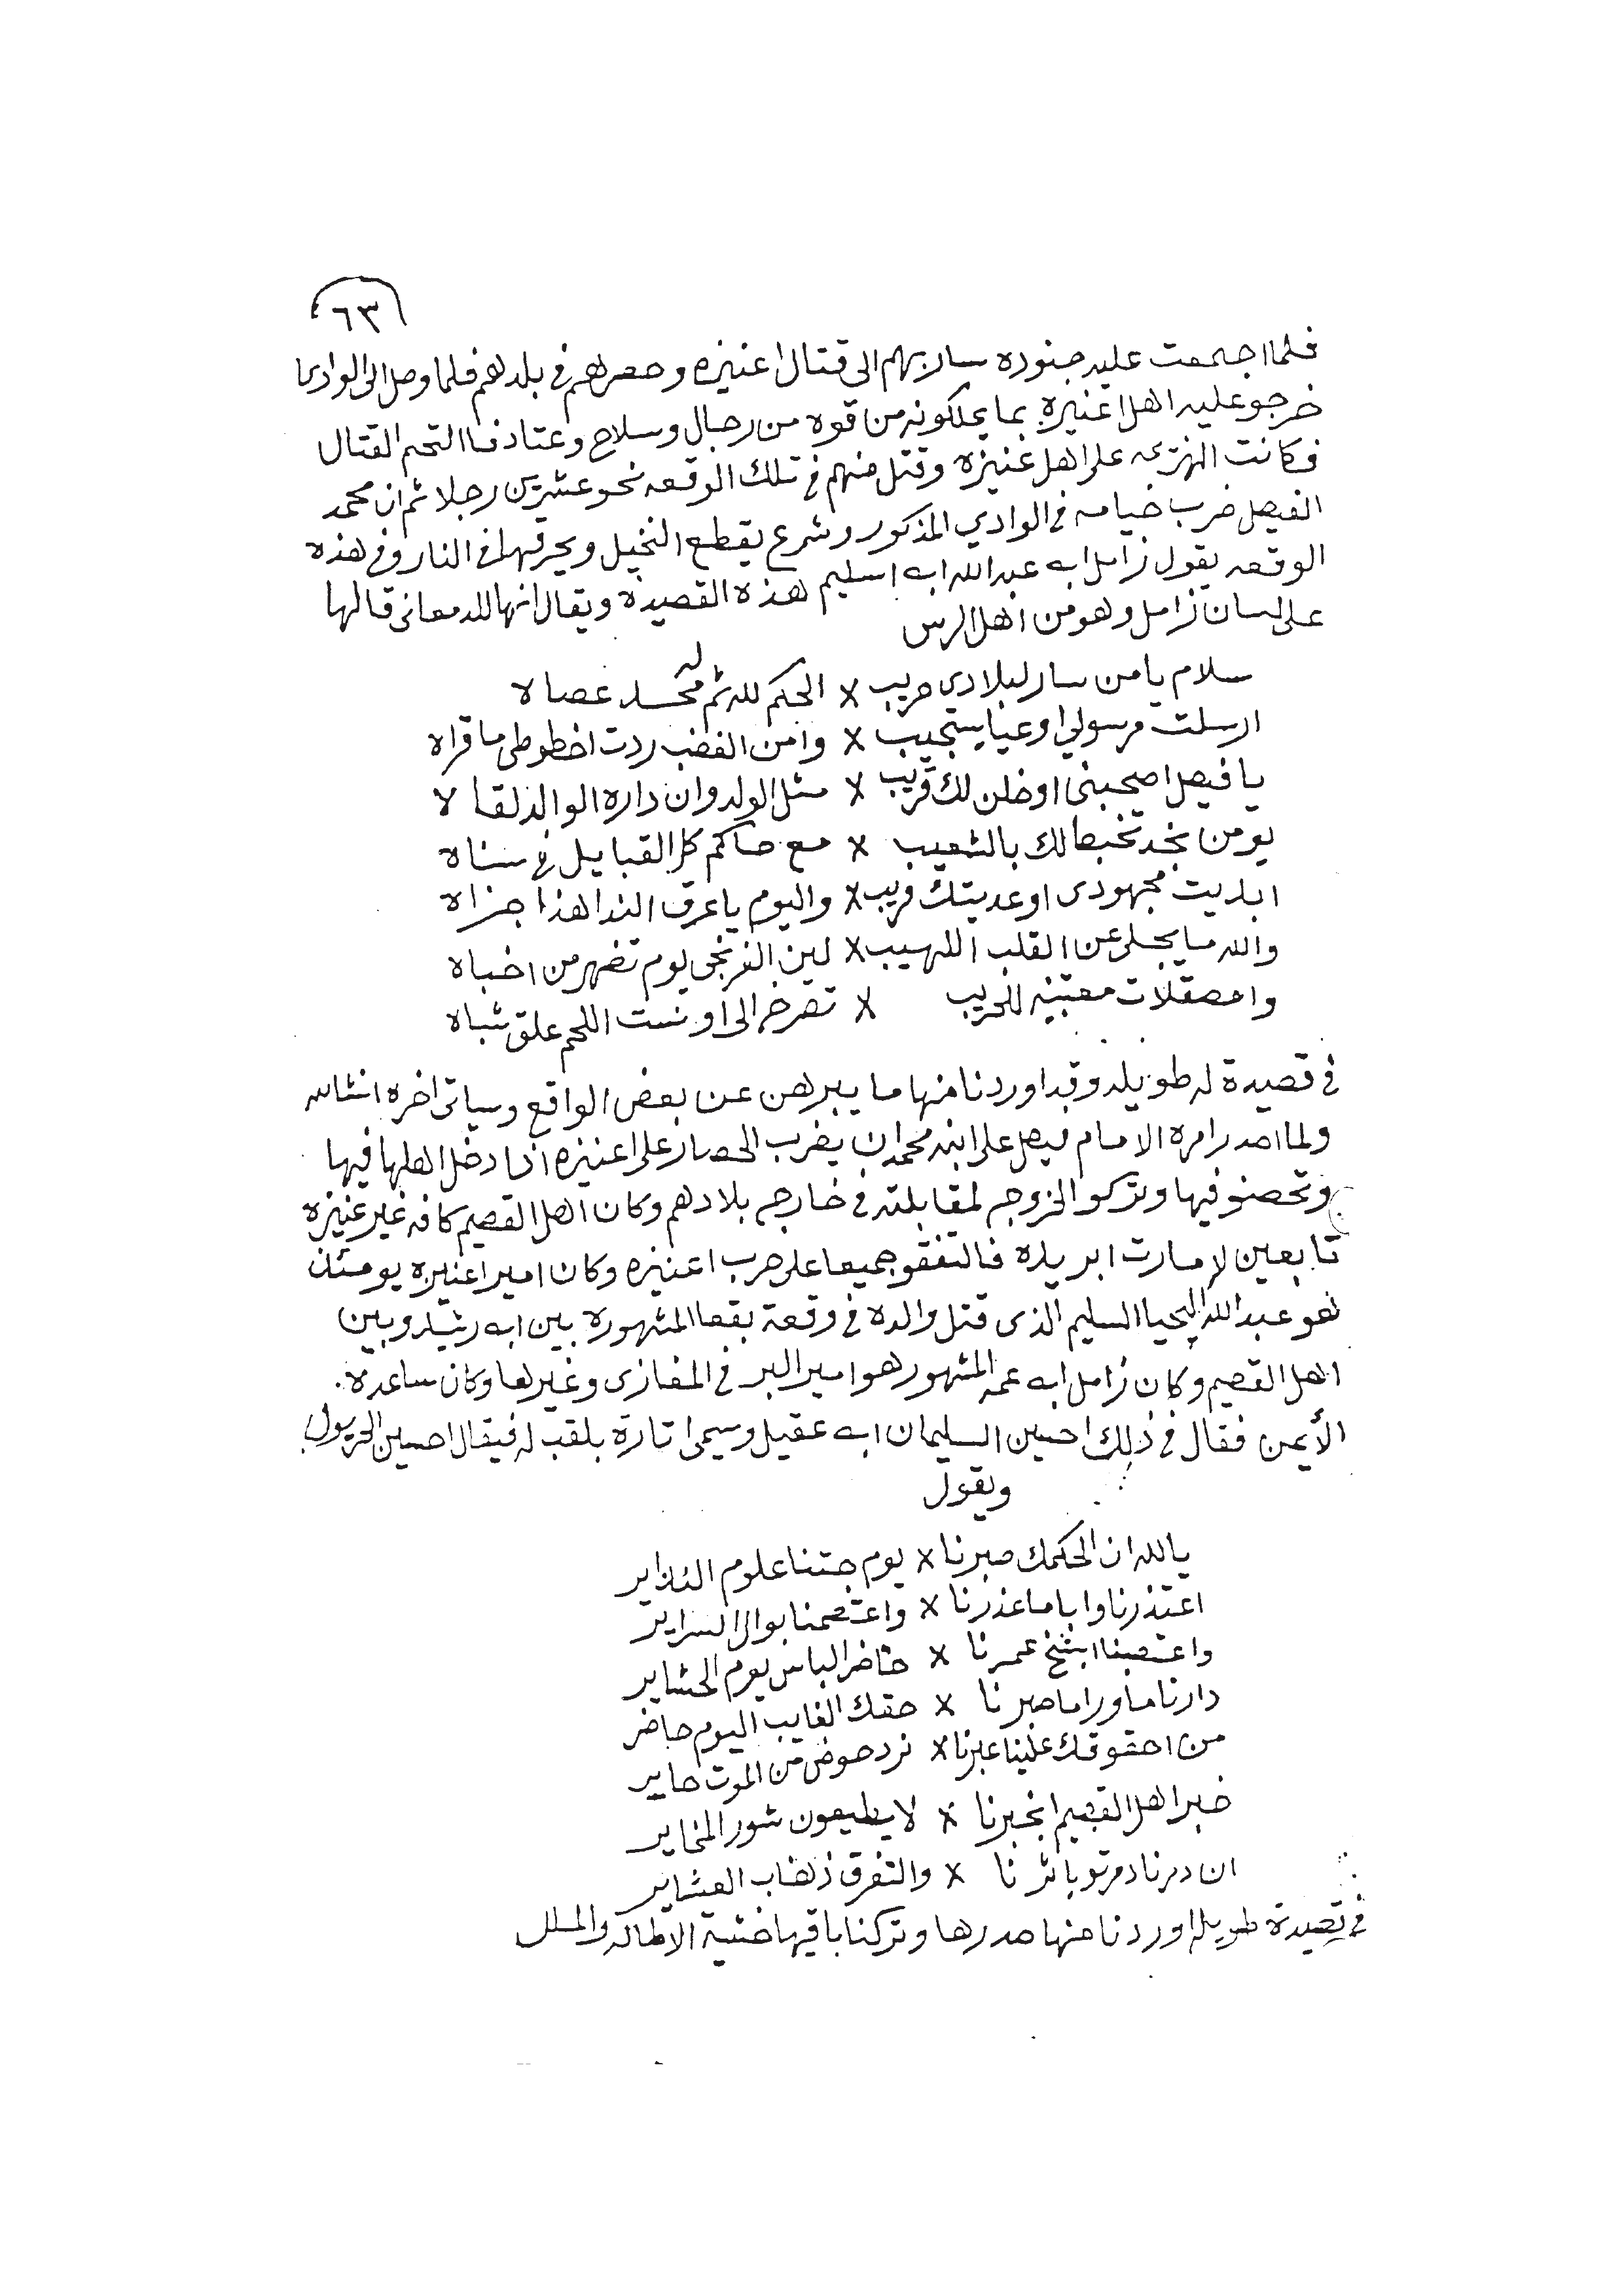 ٦٣
فلما اجمعت عليه جنوده سار بهم الى قتال اعنيزه وحصرهم في بلدهم فلما وصل الى الوادي
خرجو عليه اهل اعنيزه بما يملكونه من قوه من رجال وسلاح وعتاد فا التحم القتال
فكانت الهزيمه على اهل عنيزه وقتل منهم في تلك الوقعه نحو عشرين رجلا ثم ان محمد
الفيصل ضرب خيامه في الوادي المذكور وشرع يقطع النخيل ويحرقها في النار وفي هذه
الوقعه يقول زامل ابه عبد الله ابه اسليم هذه القصيدة ويقال انها للدمعاني قالها
على لسان زامل وهو من اهل الرس
سلام يا من سار لبلادي حريب × الحكم لله ثم لمحمد عصاه
ارسلت مرسولي اوعيا يستجيب × وامن الغضب ردت اخطوطي ما قراه
يا فيصل اصحبني اوخلن لك قريب × مثل الولد وان داره الوالد لقاه
يومن نجد تخبط لك بالشعيب × مع حاكم كل القبايل في سناه
ابديت مجهودي اوعديتك قريب × واليوم يا عرق الندا هذا جزاه
والله ما يجلي عن القلب اللهيب × لين الفرنجي يوم تضهر من اخباه
وامصقلات معتبنه للحريب × تصرخ الى اونست اللحم علق شباه
في قصيدة له طويله وقد اوردنا منها ما يبرهن عن بعض الواقع وسياتي اخره انشالله
ولما اصدر امره الامام فيصل على ابنه محمد ان يضرب الحصار على اعنيزه اذا دخل اهلها فيها
وتحصنو فيها وتركو الخروج لمقابلته في خارج بلادهم وكان اهل القصيم كافه غير عنيزه
تابعين لامارت ابريده فالتفقو جميعا على حرب اعنيزه وكان امير اعنيزه يومئذ
هو عبدالله اليحيا السليم الذي قتل والده في وقعة بقعا المشهوره بين ابه رشيد وبين
اهل القصيم وكان زامل ابه عمه المشهور هو امير البر في المغازى وغيرها وكان ساعده
الأيمن فقال في ذلك احسين السليمان ابه عقيل ويسمى تارة بلقب له فيقال احسين الحريول
ويقول
يالله ان الحكمك صبرنا × يوم جتنا علوم النذاير
اعتذرنا وابا ما عذرنا × واعتصمنا بوالي السراير
واعتصبنا ابشيخ عمرنا × حاضر الباس يوم الحشاير
دارنا ما ورا ما صبرنا × حقك الغايب اليوم حاضر
من احقوقك علينا عبرنا × نرد حوض من الموت حاير
خبر اهل القصيم ابخبرنا × لا يطيعون شور المخاير
ان دمرنا دمرتو باثرنا × والتفرق ذهاب العشاير
في قصيدة طويله اوردنا منها صدرها وتركنا باقيها خشية الاطاله والملل